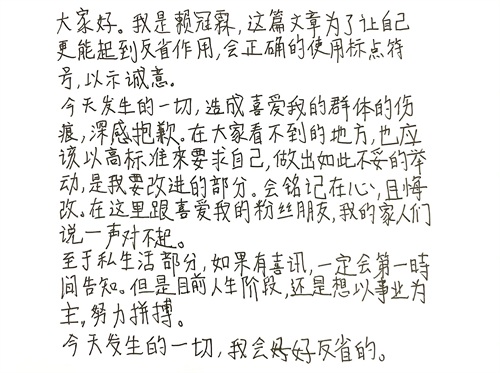 大家好。我是赖冠霖,这篇文章为了让自己
更能起到反省作用,会正确的使用标点符
号,以示诚意.
今天发生的一切,造成喜爱我的群体的伤
痕,深感抱歉。在大家看不到的地方,也应
该以高标准來要求自己,做出如此不妥的举
动,是我要改进的部分。会铭记在心,且悔
改。在这里跟喜爱我的粉丝朋友,我的家人们
说一声对不起。
至于私生活部分,如果有喜讯,一定会第一時
间告知。但是目前人生阶段,还是想以事业为
主,努力拼搏。
今天发生的一切,我会好好反省的。